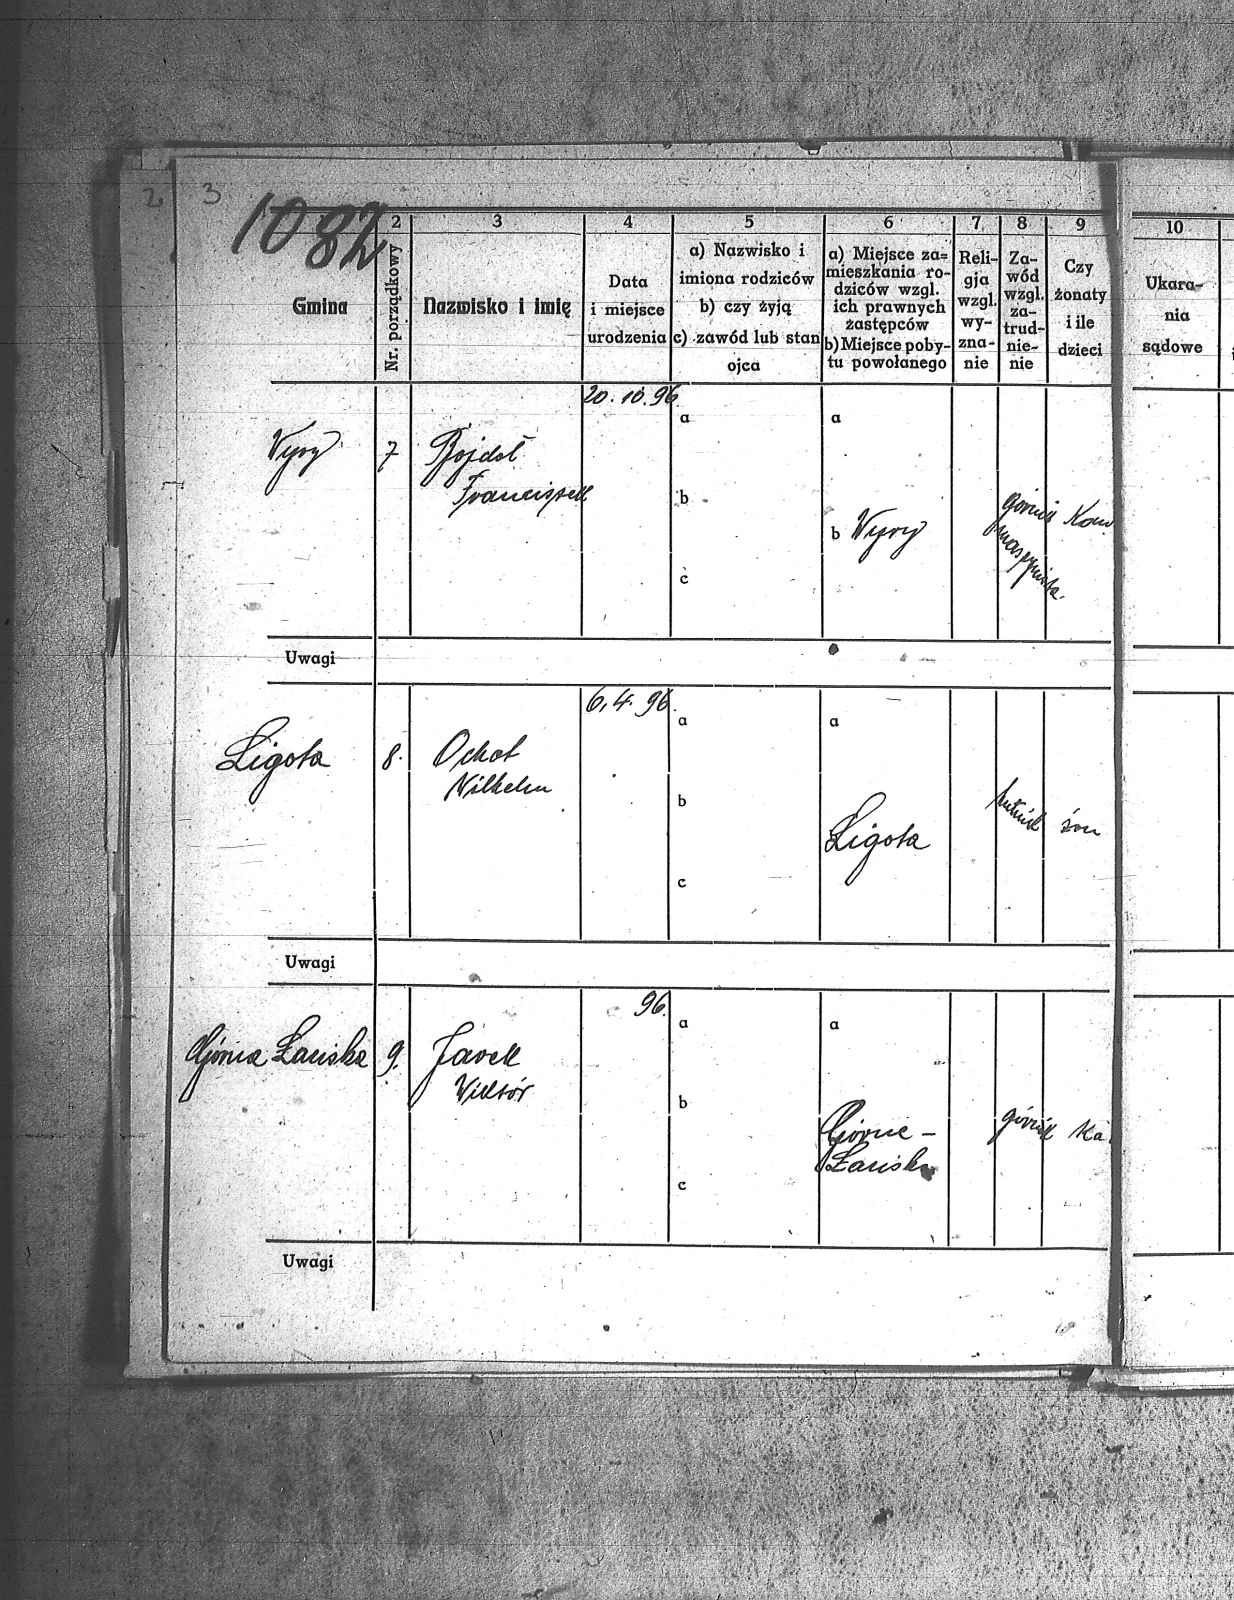 2 3
1082
2 3 4 5 6 7 8 9 10
Gmina
Nr. porządkowy
Nazwisko i imię
Data
i miejsce
urodzenia
a) Nazwisko i
imiona rodziców
b) czy żyją
c) zawód lub stan
ojca
a) Miejsce za=
mieszkania ro-
dziców wzgl.
ich prawnych
zastępców
b) Miejsce poby-
tu powołanego
Reli-
gja
wzgl.
wy-
zna-
nie
Za-
wód
wzgl.
za-
trud-
nie-
nie
Czy
żonaty
i ile
dzieci
Ukara-
nia
sądowe
20.10.96
a a
Wyry 7 Bojdoł
Franciszek
b
b Wyry
górnik Kaw
maszynista.
c
Uwagi
6.4.96.
a a
Ligota 8. Ochot
Wilhelm
b
Ligota
hutnik żon
c
Uwagi
96.
a a
Górna Łaziska 9. Jarek
Wiktór
b
Górne-
Łaziska
górnik Ka
c
Uwagi